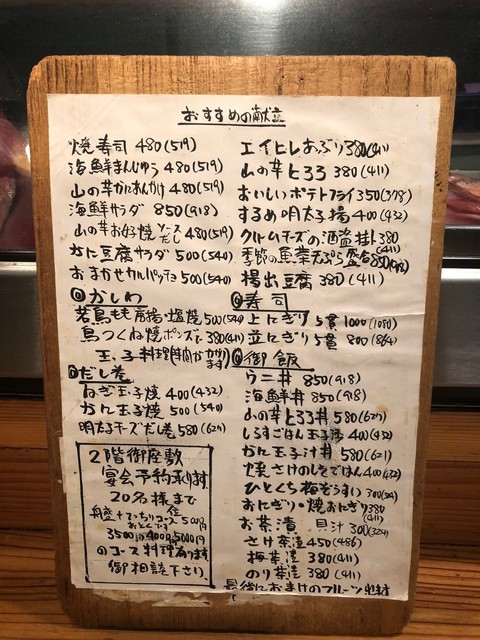 おすすめの献立
焼寿司 480(519)
海鮮まんじゅう 480(519)
山の芋かにあんかけ 480(519)
海鮮サラダ 850(918)
山の芋お好み焼 ソース だし 480(519)
かに豆腐サラダ 500(540)
おまかせカルパッチョ 500(540)
かしわ
若鳥もも 唐揚・塩焼 500(540)
鳥つくね焼ポンズで 380(411)
玉子料理(時間かかります)
だし巻
ねぎ玉子焼 400(432)
かに玉子焼 500(540)
明太チーズだし巻 580(627)
2階御座敷
宴会予約承ります
20名様まで
舟盛+てっちりコース 5000円
おとくです
3500円 4000円 5000円
のコース料理あります
御相談下さい
エイヒレあぶり 380(411)
山の芋とろろ 380(411)
おいしいポテトフライ 350(378)
するめ明太子揚 400(432)
クリームチーズの酒盗掛け 380(411)
季節の魚菜天ぷら盛合 850(918)
揚出豆腐 380(411)
寿司
上にぎり 5貫 1000(1080)
並にぎり 5貫 800(864)
御飯
ウニ丼 850(918)
海鮮丼 850(918)
山の芋とろろ丼 580(627)
しらすごはん玉子添 400(432)
かに玉汁丼 580(611)
焼さけのしそごはん 400(432)
ひとくち梅ぞうすい 300(324)
おにぎり・焼おにぎり 380(411)
お茶漬 貝汁 300(324)
さけ茶漬 450(486)
梅茶漬 380(411)
のり茶漬 380(411)
最後におまけのフルーツ出ます